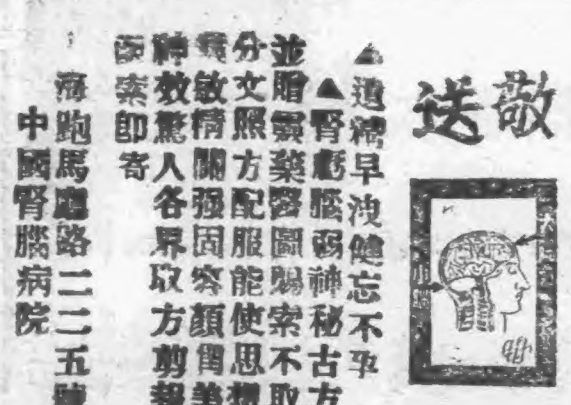 敬送
▲遺精早洩健忘不孕
▲腎虧腦弱神秘古方
並贈靈藥醫圖賜索不取
分文照方配服能使思想
敏精關强固容顏美
神效驚人各界取方剪報
函索即寄
海跑馬廳路二二五號
中國腎腦病院
大腦
小腦